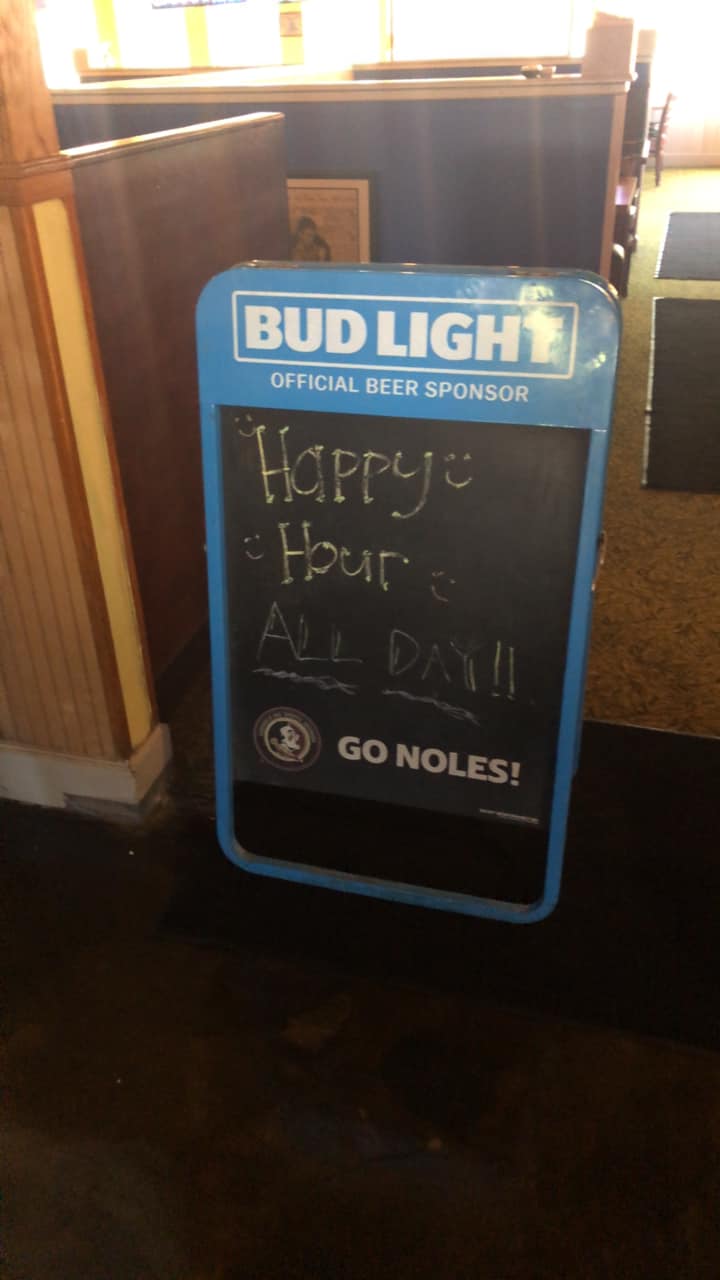 BUD LIGHT
OFFICIAL BEER SPONSOR
Happy
Hour
ALL DAY!!
GO NOLES!